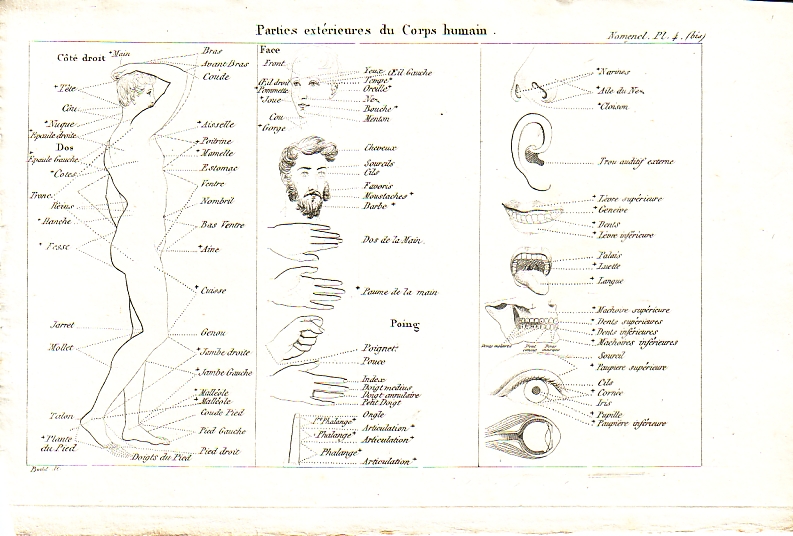 Parties extérieures du Corps humain.
Nomencl. Pl. 4. (bis)
Côté droit
*Main
Bras
Avant Bras
Coude
*Tête
Cou
*Nuque
*Epaule droite
Dos
Epaule Gauche
*Cotes
Tronc
Reins
*Hanche
*Fesse
Jarret
Mollet
Talon
*Plante
du Pied
*Aisselle
*Poitrine
*Mamelle
Estomac
Ventre
Nombril
Bas Ventre
*Aine
*Cuisse
Genou
*Jambe droite
*Jambe Gauche
*Malléole
*Malléole
Coude Pied
Pied Gauche
Pied droit
Doigts du Pied
Face
Front
Œil droit
*Pommette
*Joue
Cou
*Gorge
Yeux
Œil Gauche
Tempe*
Oreille*
Nez
Bouche*
Menton
Cheveux
Sourcils
Cils
Favoris
Moustaches*
Barbe*
Dos de la Main
*Paume de la main
Poing
Poignet
Pouce
Index
Doigt medius
Doigt annulaire
Petit Doigt
Ongle
Articulation*
Phalange*
Phalange*
Articulation*
Phalange*
Articulation*
*Narines
*Aile du Nez
*Cloison
Trou auditif externe
*Lèvre supérieure
*Gencive
*Dents
*Lèvre inférieure
Palais
*Luette
*Langue
*Machoire supérieure
*Dents supérieures
*Dents inférieures
*Machoires inférieures
Sourcil
*Paupiere supérieure
Cils
*Cornée
Iris
*Pupille
*Paupière inférieure